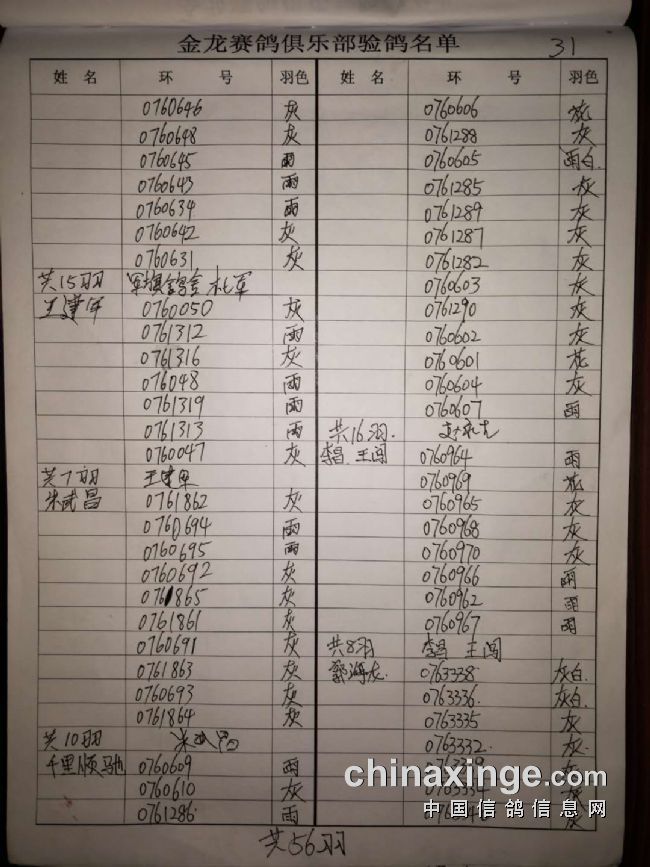 金龙赛鸽俱乐部验鸽名单
31
姓 名 环 号 羽色
0760646 灰
0760648 灰
0760645 雨
0760643 雨
0760634 雨
0760642 灰
0760631 灰
共15羽
王建军 0760050 灰
0761312 雨
0761316 灰
076048 雨
0761319 雨
0761313 雨
0760047 灰
共7羽 王建军
朱武昌 0761862 灰
0760694 雨
0760695 雨
0760692 灰
0761865 灰
0761861 灰
0760691 灰
0761863 灰
0760693 灰
0761864 灰
共10羽 朱武昌
千里顺驰 0760609 雨
0760610 灰
0761286 雨
姓 名 环 号 羽色
0760606 花
0761288 灰
0760605 雨白
0761285 灰
0761289 灰
0761287 灰
0761282 灰
0760603 灰
0761290 灰
0760602 灰
0760601 花
0760604 灰
0760607 雨
共16羽
李昌 王闯 0760964 雨
0760969 花
0760965 灰
0760968 灰
0760970 灰
0760966 雨
0760962 雨
0760967 雨
共8羽 李昌 王闯
郭海龙 0763338 灰白
0763336 灰白
0763335 灰
0763332 灰
灰
共56羽
chinaxinge.com
中国信鸽信息网